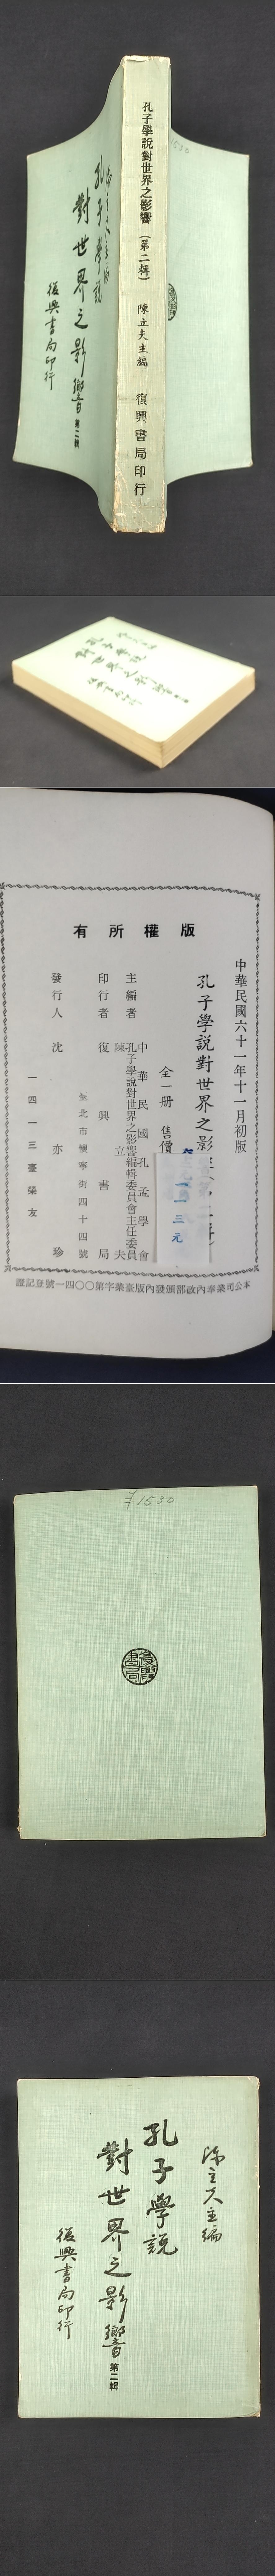 孔子學說對世界之影響（第二輯） 陳立夫主編 復興書局印行
1530
陳立夫主編
孔子學說
對世界之影響 第二輯
復興書局印行
孔子學說
對世界之影響
復興書局印行
有所權版
中華民國六十一年十一月初版
孔子學說對世界之影
全一冊 售價
一一三元
中華民國孔孟學會
主編者 孔子學說對世界之影響編輯委員會主任委員
陳立夫
印行者 復興書局
臺北市懷寧街四十四號
發行人 沈亦珍
一四一三臺榮友
本公司業奉內政部頒發內版臺業字第〇〇四一號登記證
¥1530
復興書局
陳立夫主編
孔子學說
對世界之影響 第二輯
復興書局印行